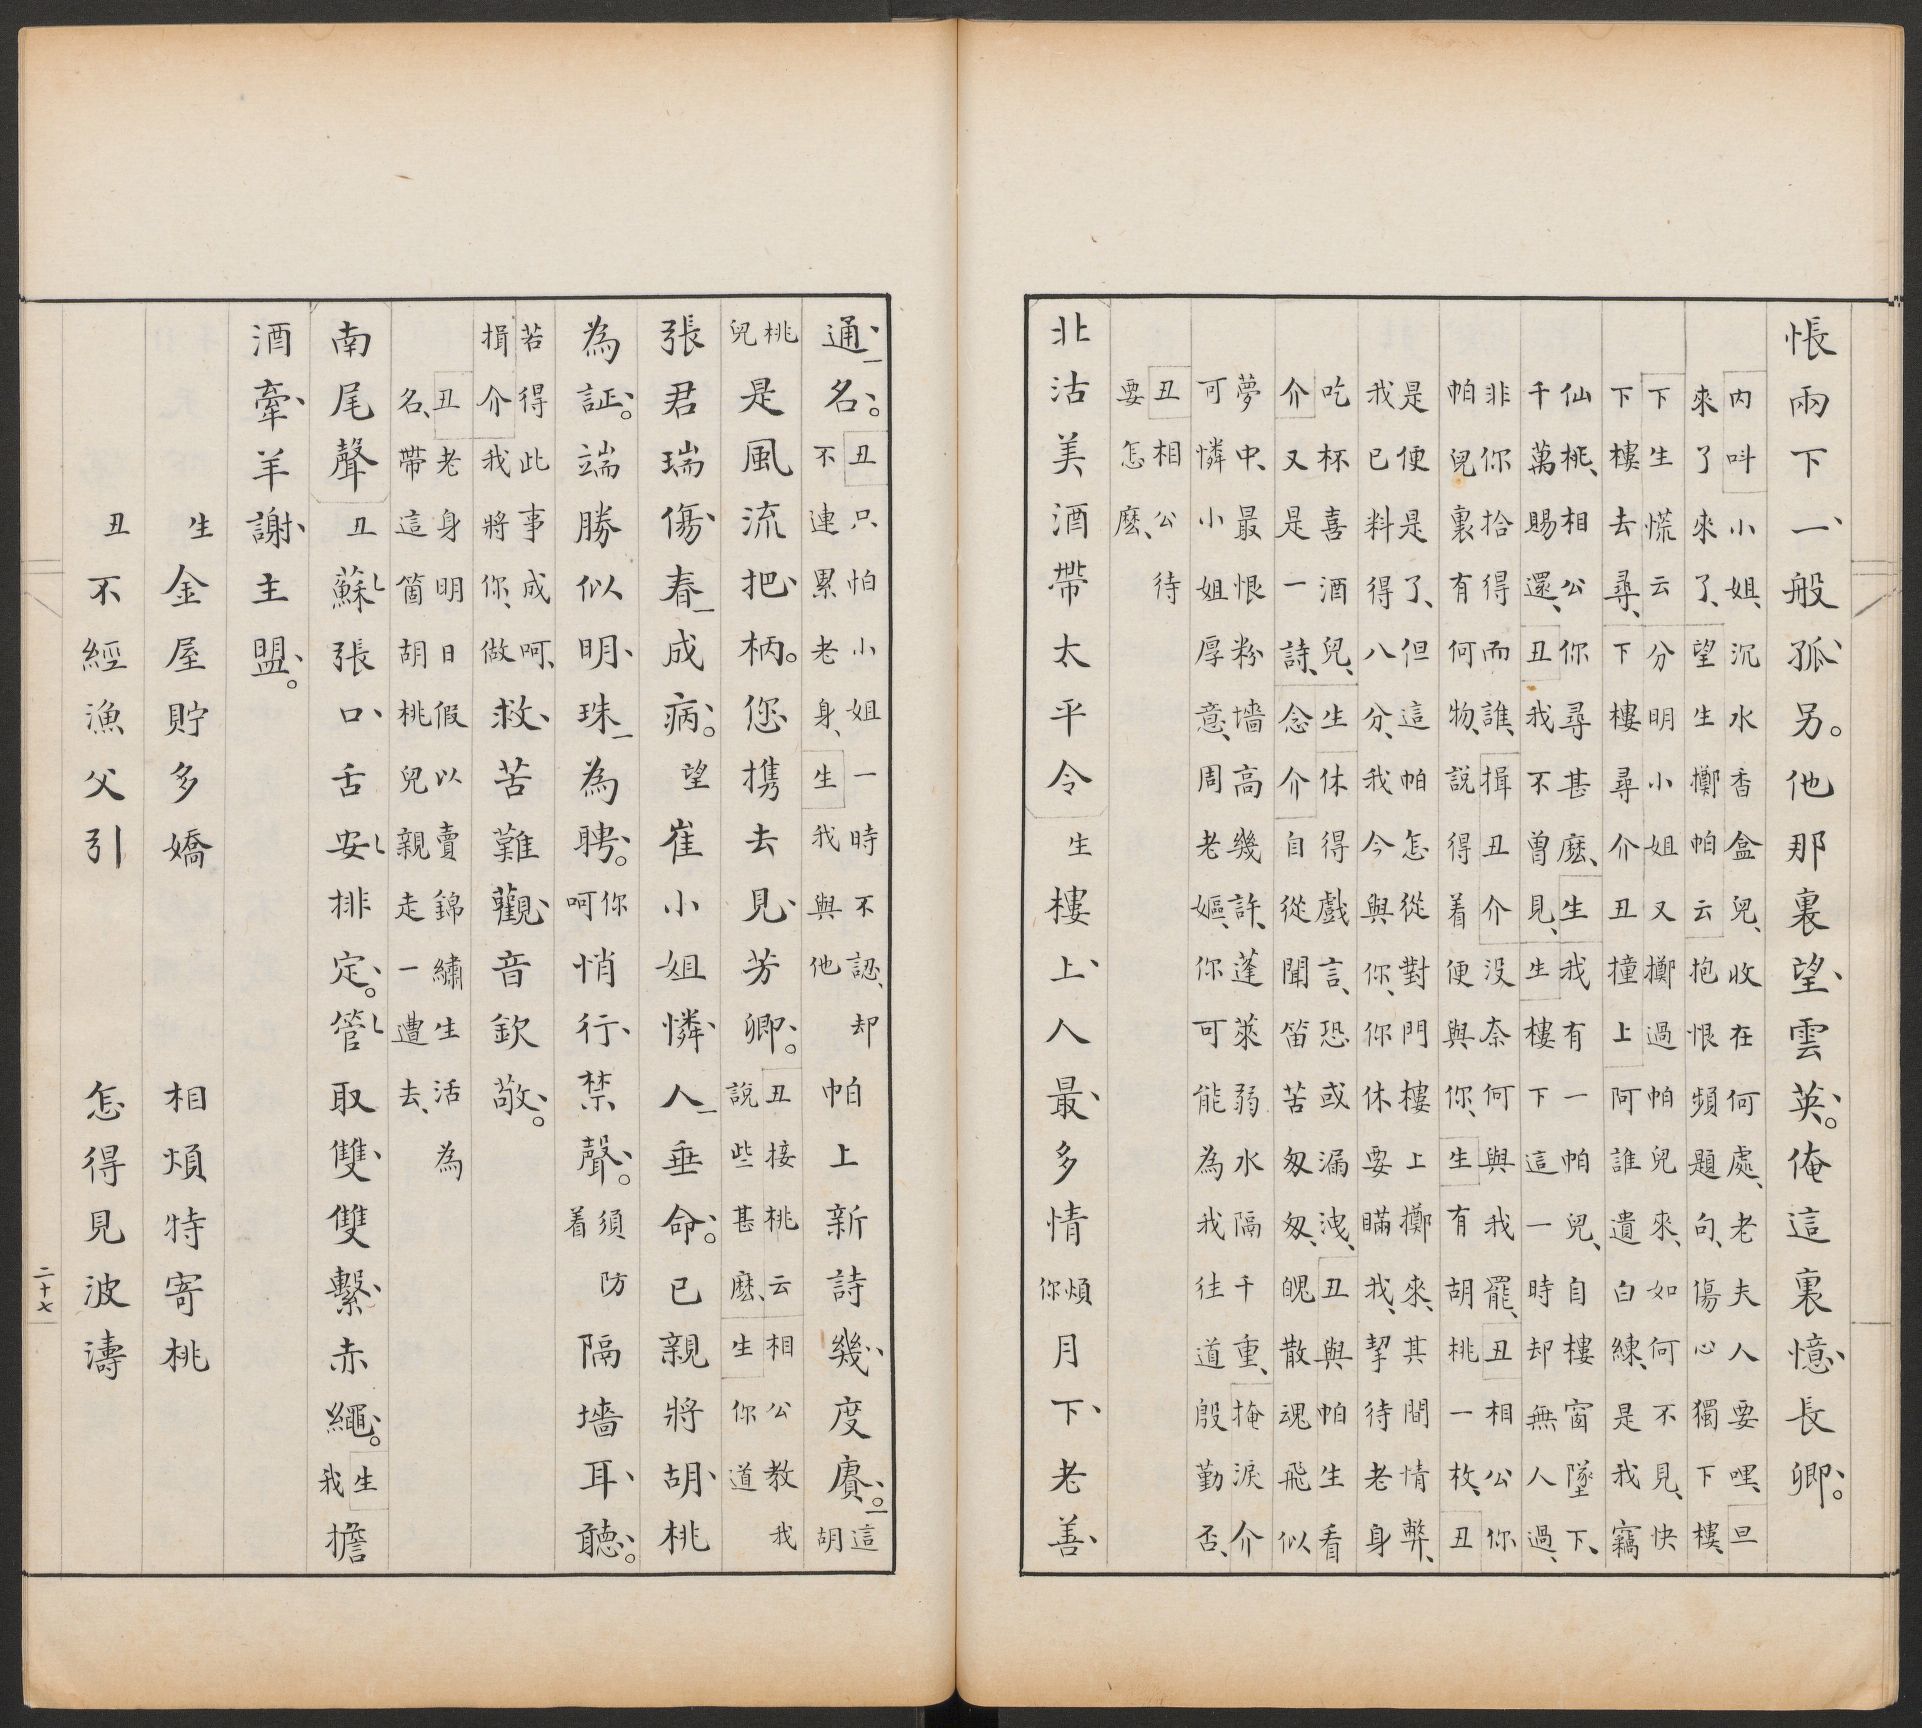 悵兩下一般孤另。他那裏望雲英。俺這裏憶長卿。
内呌小姐、沉水香盒兒、收在何處、老夫人要哩、旦
來了來了、望生擲帕云抱恨頻題句、傷心獨下樓、
下生慌云分明小姐又擲過帕兒來、如何不見、快
下樓去尋、下樓尋介丑撞上阿誰遺白練、是我竊
仙桃、相公你尋甚麽、生我有一帕兒、自樓窗墜下、
千萬賜還、丑我不曾見、生樓下這一時却無人過、
非你拾得而誰、揖丑介没奈何與我罷、丑相公你
帕兒裏有何物、説得着便與你、生有胡桃一枚、丑
是便是了、但這帕怎從對門樓上擲來、其間情弊、
我已料得八分、我今與你、你休要瞞我、挈待老身
吃杯喜酒兒、生休得戲言、恐或漏洩、丑與帕生看
介又是一詩、念介自從聞笛苦匆匆、魄散魂飛似
夢中、最恨粉墻高幾許、蓬萊弱水隔千重、掩淚介
可憐小姐厚意、周老嫗、你可能為我往道殷勤否、
丑相公待
要怎麽、
北沽美酒帶太平令 生樓上人最多情煩你月下老善
通名。丑只怕小姐一時不認、却不連累老身、生我與他帕上新詩幾度賡。這胡
桃兒是風流把柄。您攜去見芳卿。丑接桃云相公教我說些甚麽、生你道
張君瑞傷春成病。望崔小姐憐人垂命。已親將胡桃
為証。端勝似明珠為聘。你呵悄行禁聲。須着防隔墻耳聽。
若得此事成呵、揖介我將你、做救苦難觀音欽敬。
丑老身明日假以賣錦繡生活為
名、帶這箇胡桃兒親走一遭去、
南尾聲 丑蘇張口舌安排定。管取雙雙繫赤繩。生我擔
酒牽羊謝主盟。
生金屋貯多嬌 相煩特寄桃
丑不經漁父引 怎得見波濤
二十七